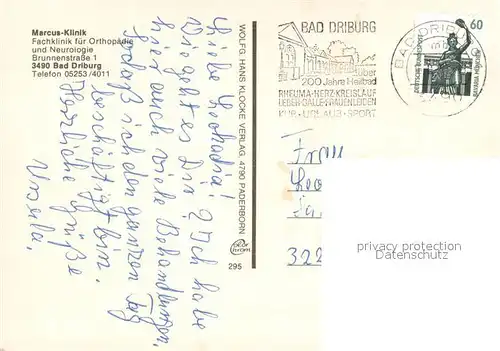 Marcus-Klinik
Fachklinik für Orthopädie
und Neurologie
Brunnenstraße 1
3490 Bad Driburg
Telefon 05253/4011
Liebe Leokadia!
Wie geht es Dir? Ich habe
hier auch viele Behandlungen,
sodaß ich den ganzen Tag
beschäftigt bin.
Herzliche Grüße
Ursula.
WOLFG. HANS KLOCKE VERLAG, 4790 PADERBORN
295
BAD DRIBURG
über
200 Jahre Heilbad
RHEUMA-HERZ-KREISLAUF
LEBER-GALLE-FRAUENLEIDEN
KUR-URLAUB-SPORT
BAD DRIBURG
mb
60
DEUTSCHE BUNDESPOST
Frau
Leo
322
privacy protection
Datenschutz